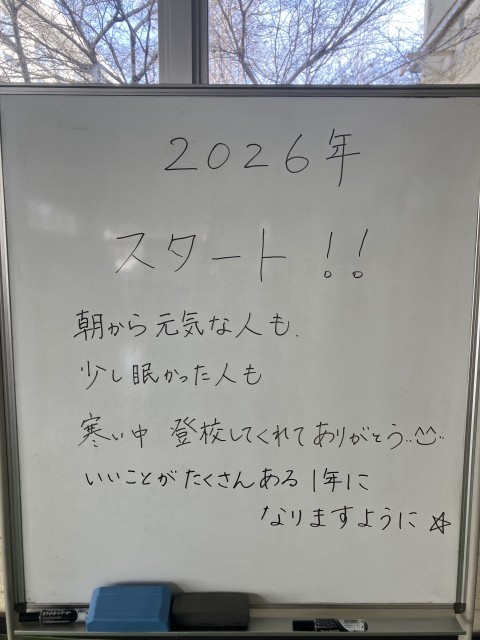 2026年
スタート!!
朝から元気な人も、
少し眠かった人も
寒い中 登校してくれてありがとう..
いいことがたくさんある1年に
なりますように☆